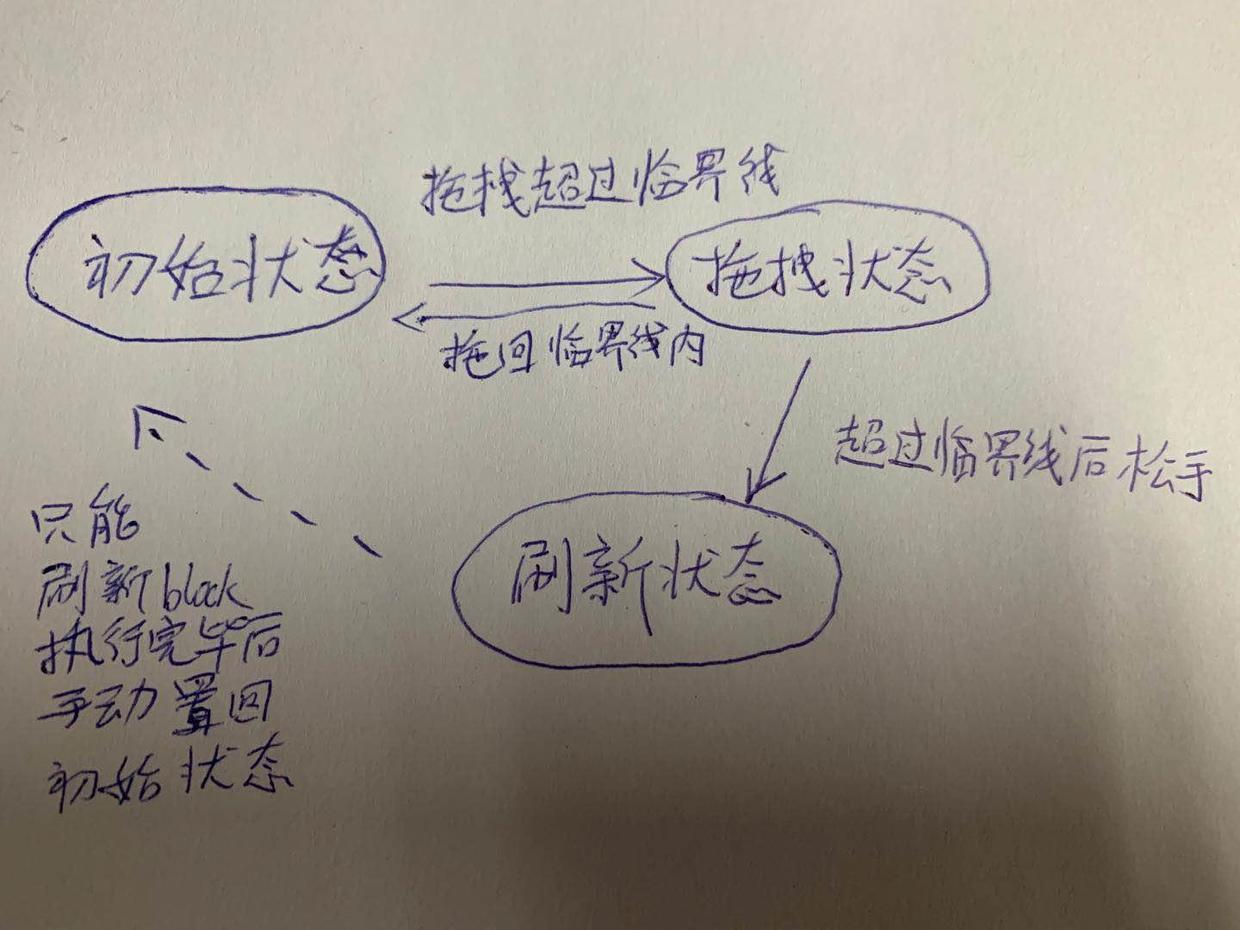 拖拽超过临界线
初始状态
拖拽状态
拖回临界线内
超过临界线后松手
刷新状态
只能
刷新block
执行完毕后
手动置回
初始状态